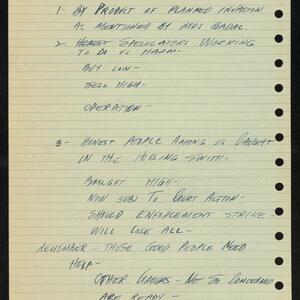 1- BY PRODUCT OF PLANNED INVASION
AS MENTIONED BY MRS BADAL.
2- HONEST SPECULATORS WORKING
TO DO US HARM-
BUY LOW-
SELL HIGH-
OPERATION-
3- HONEST PEOPLE AMONG US CAUGHT
IN THE HOUSING
BOUGHT HIGH-
NOW SUBJ TO COURT ACTION-
SHOULD ENFORCEMENT STRIKE-
WILL LOSE ALL-
REMEMBER- THESE GOOD PEOPLE NEED
HELP-
OTHER GROUPS- NOT SO CONCERNED
ARE READY-